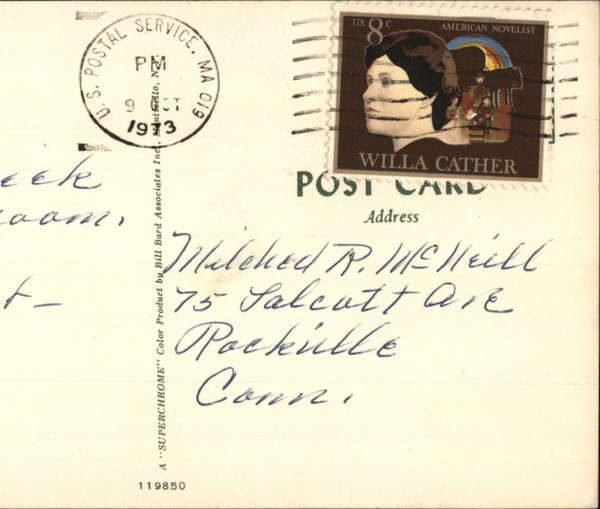 U.S. POSTAL SERVICE, MA 019
PM
9 OCT
1973
U.S. 8c
AMERICAN NOVELIST
WILLA CATHER
POST CARD
Address
eek
oom.
t-
Mildred R. McNeill
75 Talcott Ave
Rockville
Conn.
A "SUPERCHROME" Color Product by Bill Bard Associates Inc., Monticello, N.Y.
119850